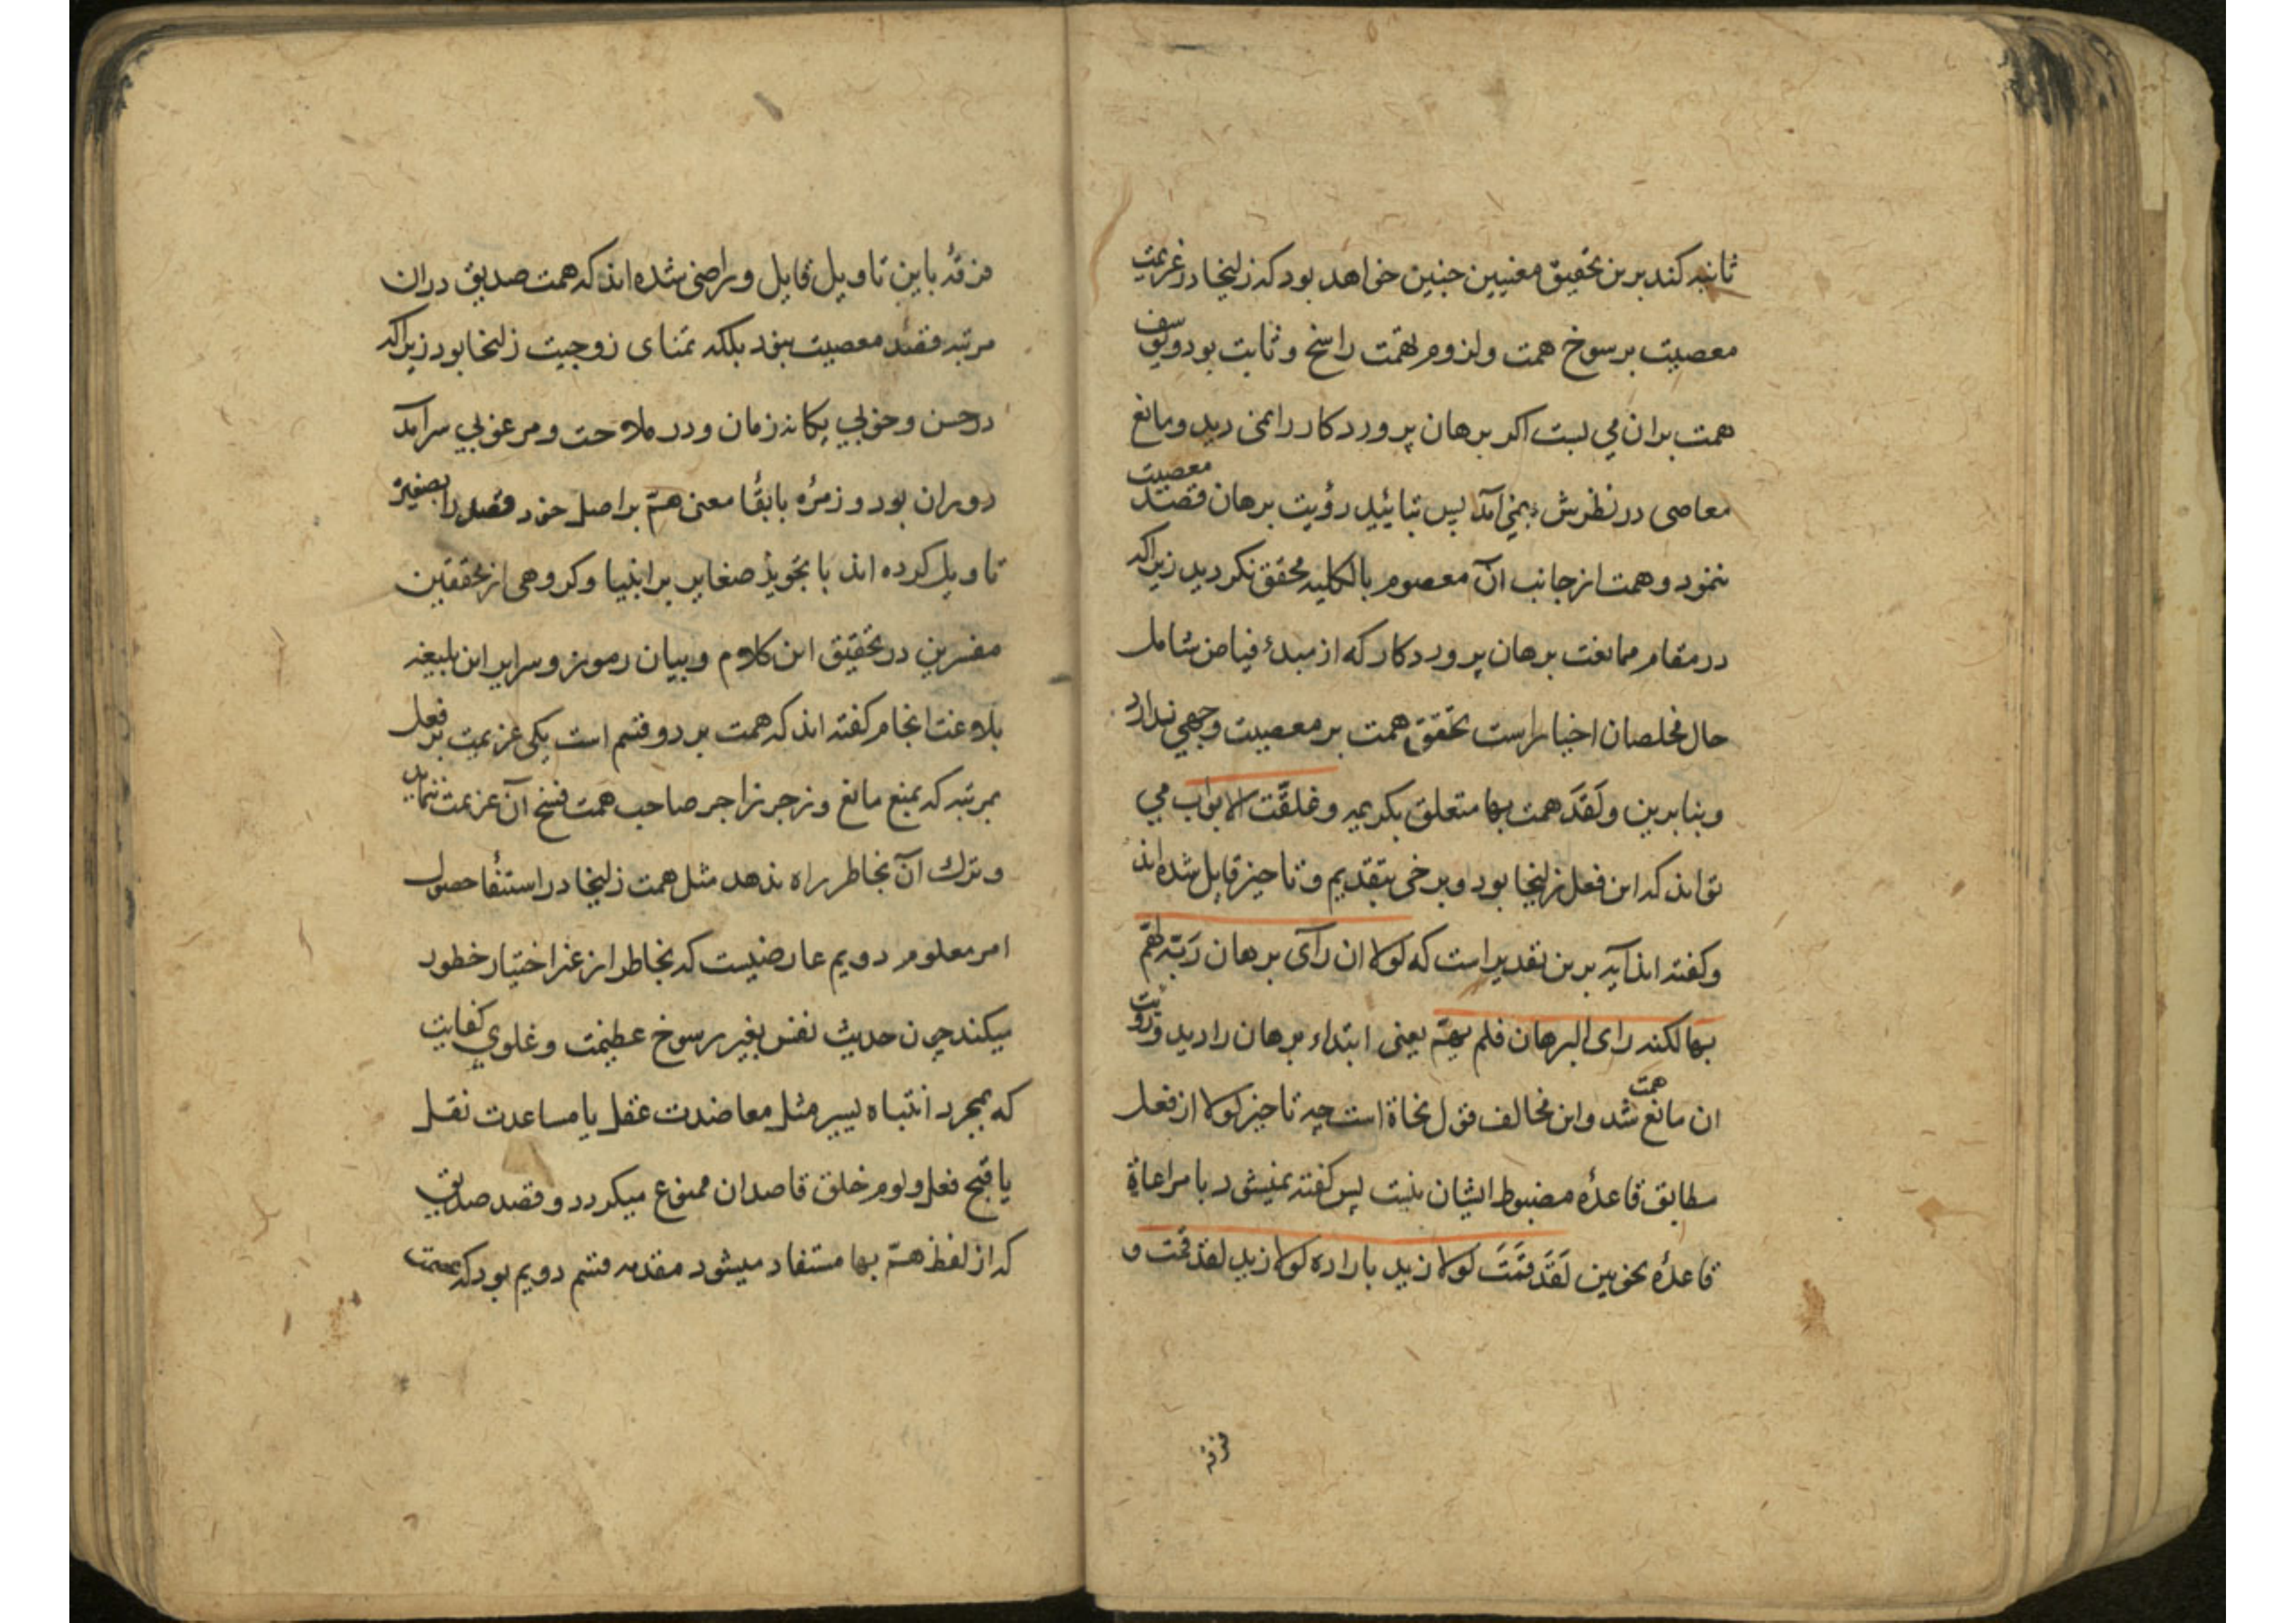 ثانیه کند برین تحقیق معنیین چنین خواهد بود که زلیخا در عزیمت
معصیت برسوخ همت ولزوم تهمت راسخ و ثابت بود ویوسف
همت بران می بست اکر برهان پروردکار را نمی دید ومانع
معاصی در نظرش نمی آمد پس بتائید رؤیت برهان قصد معصیت
ننمود وهمت از جانب آن معصوم بالکلیه محقق نکردید زیراکه
در مقام ممانعت برهان پروردکار که از مبدء فیاض شامل
حال مخلصان اخیار است تحقق همت بر معصیت وجهی ندارد
وبنابرین ولَقَدَ همت بها متعلق بکریمه وغلقّت الابواب می
تواند که این فعل زلیخا بود وبرخی بتقدیم وتاخیر قایل شده اند
وکفته اند آیه برین تقدیر است که لولا ان رآی برهان رَبّه لهَمّ
بها لکنه رای البرهان فلم یهمّ یعنی ابتداء برهان را دید ورویت
ان مانع همت شد واین مخالف قول نحاة است چه تاخیر لولا از فعل
مطابق قاعدهٔ مضبوط ایشان نیست پس کفته نمیشود با مراعاة
قاعدهٔ نحویین لَقَدَ قمَتَ لولا زید باراده لولا زید لقد قمت و
فرقه
فرقهٔ باین تاویل قایل وراضی شده اند که همت صدیق دران
مرتبه قصد معصیت نبود بلکه تمنای زوجیت زلیخا بود زیراکه
در حسن وخوبی یکانه زمان ودر ملاحت ومرغوبی سرآمد
دوران بود و زمرهٔ بابقأ معنی همّ براصل خود قصد را بصغیره
تاویل کرده اند با تجویز صغایر بر انبیا وکروهی از محققین
مفسرین در تحقیق این کلام وبیان رموز وسرایر این بلیغه
بلاغت انجام کفته اند که همت بر دو قسم است یکی عزیمت بر فعل
بمرتبه که بمنع مانع وزجر زاجر صاحب همت فسخ آن عزیمت ننماید
وترک آن بخاطر راه ندهد مثل همت زلیخا در استیفأ حصول
امر معلوم دویم عارضیست که بخاطر از غیر اختیار خطور
میکند چون حدیث نفس بغیر رسوخ عطیمت وغلوی کفایت
که بمجرد انتباه یسیر مثل معاضدت عقل یا مساعدت نقل
یا قبح فعل ولوم خلق قاصدان ممنوع میکردد وقصد صدیق
که از لفظ همّ بها مستفاد میشود مقدمه قسم دویم بود که